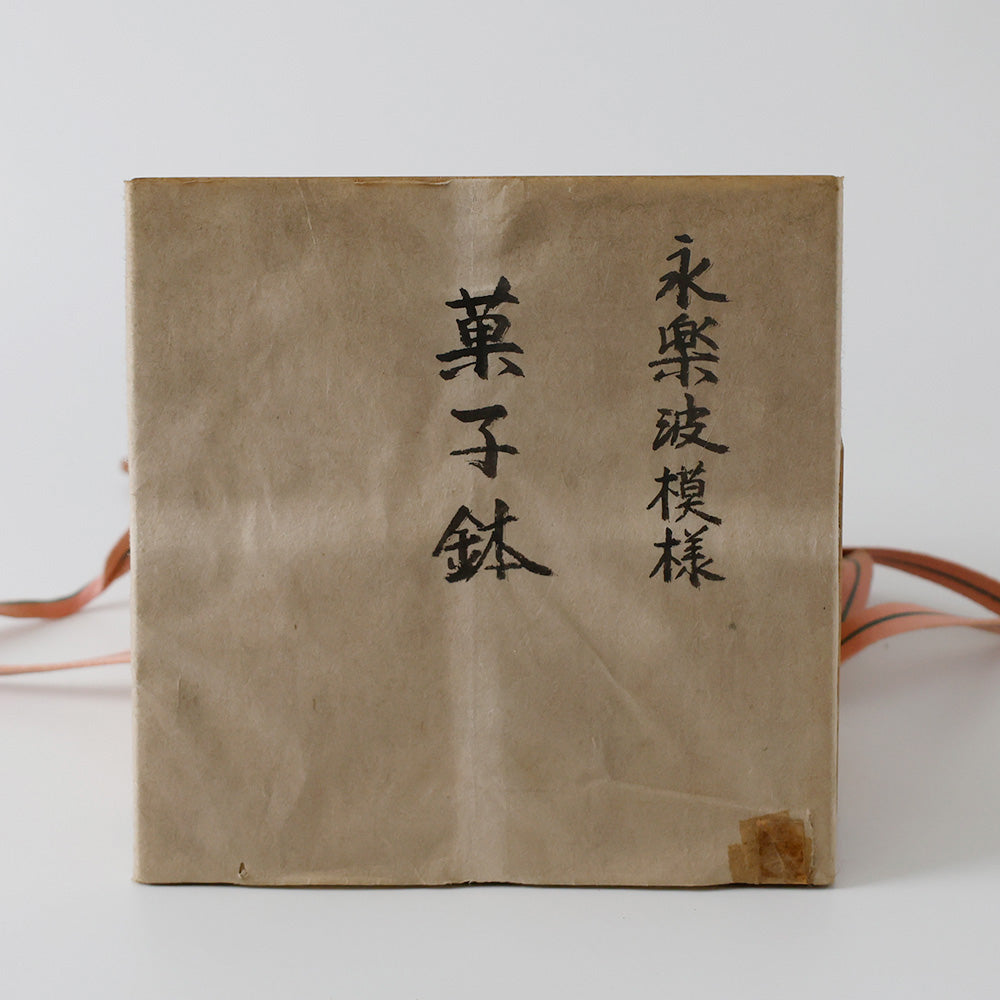 永楽波模様
菓子鉢